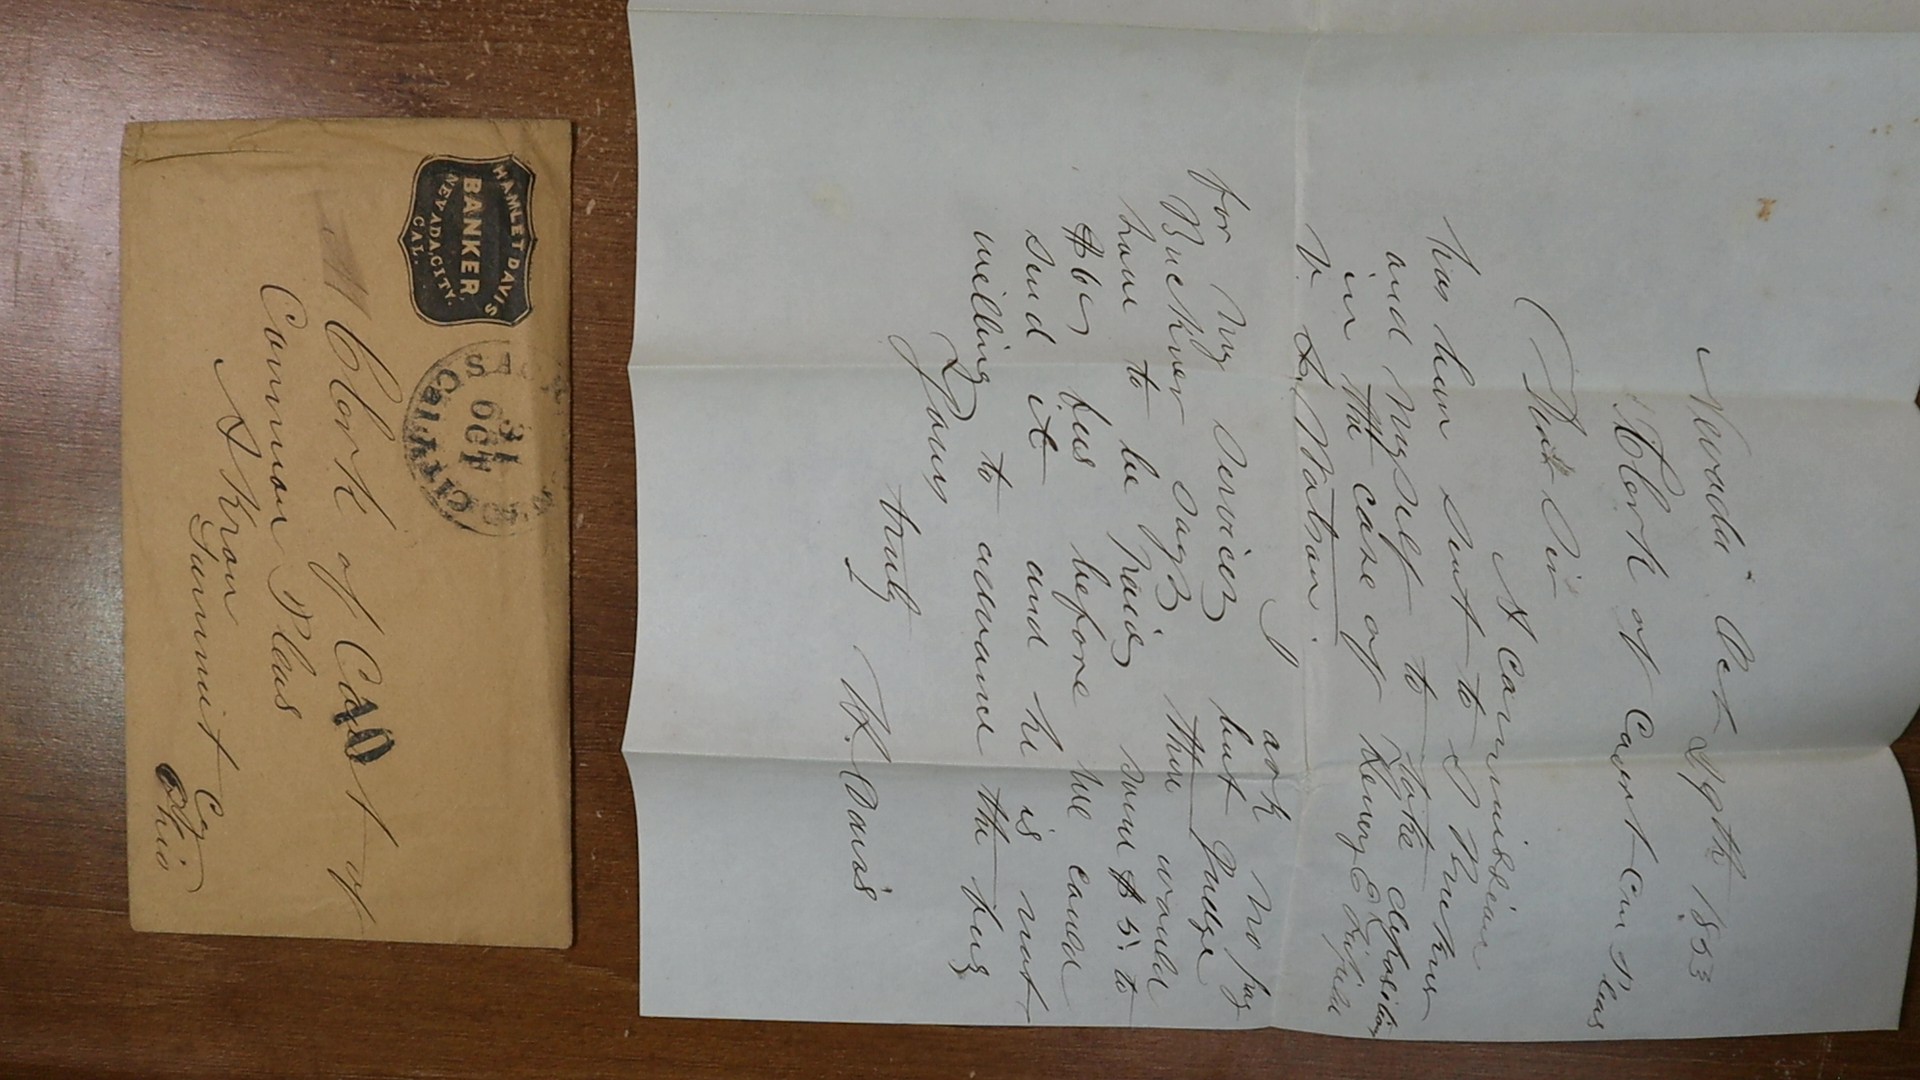 HAMLET DAVIS
BANKER
NEVADA CITY.
CAL.
SACR CITY
31
OCT
Cal
PAID
Clerk of Court of
Common Pleas
Akron
Summit Co
Ohio
Nevada Oct 29th 1853
Clerk of Court Com Pleas
Dear Sir
A Commission
has been sent to Buckner
and Myself to take deposition
in the case of Henry
v. Watson.
I ask no pay
for My Services but Judge
Buckner says there would
have to be paid some $5. to
$6. fees before we could
send it and he is not
willing to advance the fees
Yours
truly
H. Davis